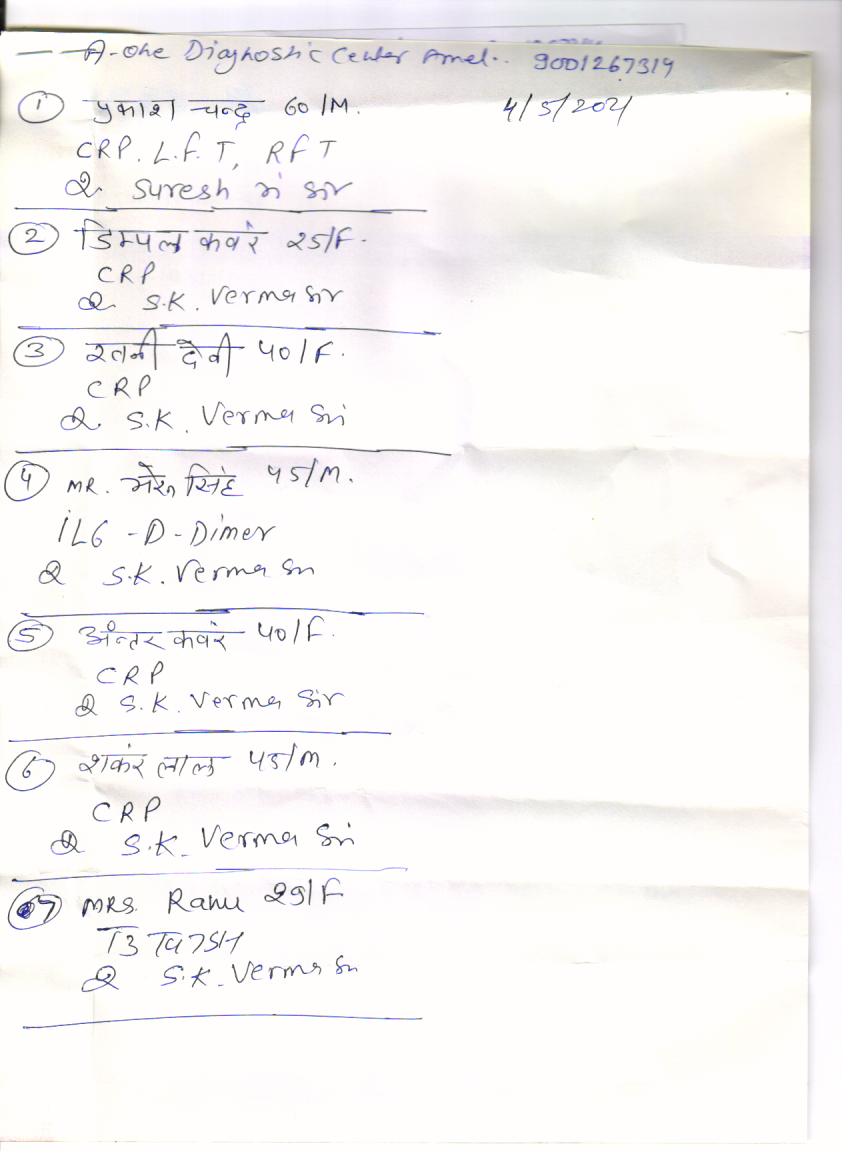 A-one Diagnostic Center Amet.. 9001267319
① प्रकाश चन्द्र 60/M. 4/5/2021
CRP. L.F.T, RFT
Suresh सर
② डिम्पल कवंर 25/F.
CRP
S.K. Verma Sir
③ रतनी देवी 40/F.
CRP
S.K. Verma Sir
④ MR. भेरू सिंह 45/M.
IL6 - D - Dimer
S.K. Verma Sir
⑤ अन्तर कवंर 40/F.
CRP
S.K. Verma Sir
⑥ शकंर लाल 45/M.
CRP
S.K. Verma Sir
⑦ MRS. Ranu 29/F
T3 T4 TSH
S.K. Verma Sir